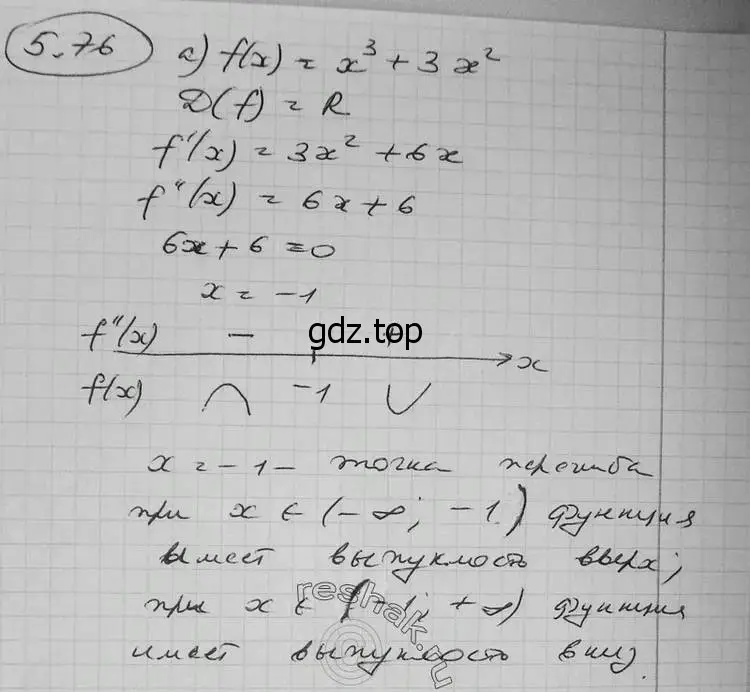 5.76 а) f(x) = x³ + 3x²
D(f) = R
f'(x) = 3x² + 6x
f''(x) = 6x + 6
6x + 6 = 0
x = -1
f''(x) - + 
gdz.top
x
f(x) -1
x = -1 - точка перегиба
при x ∈ (-∞; -1) функция
имеет выпуклость вверх;
при x ∈ (-1; +∞) функция
имеет выпуклость вниз.
reshak.ru